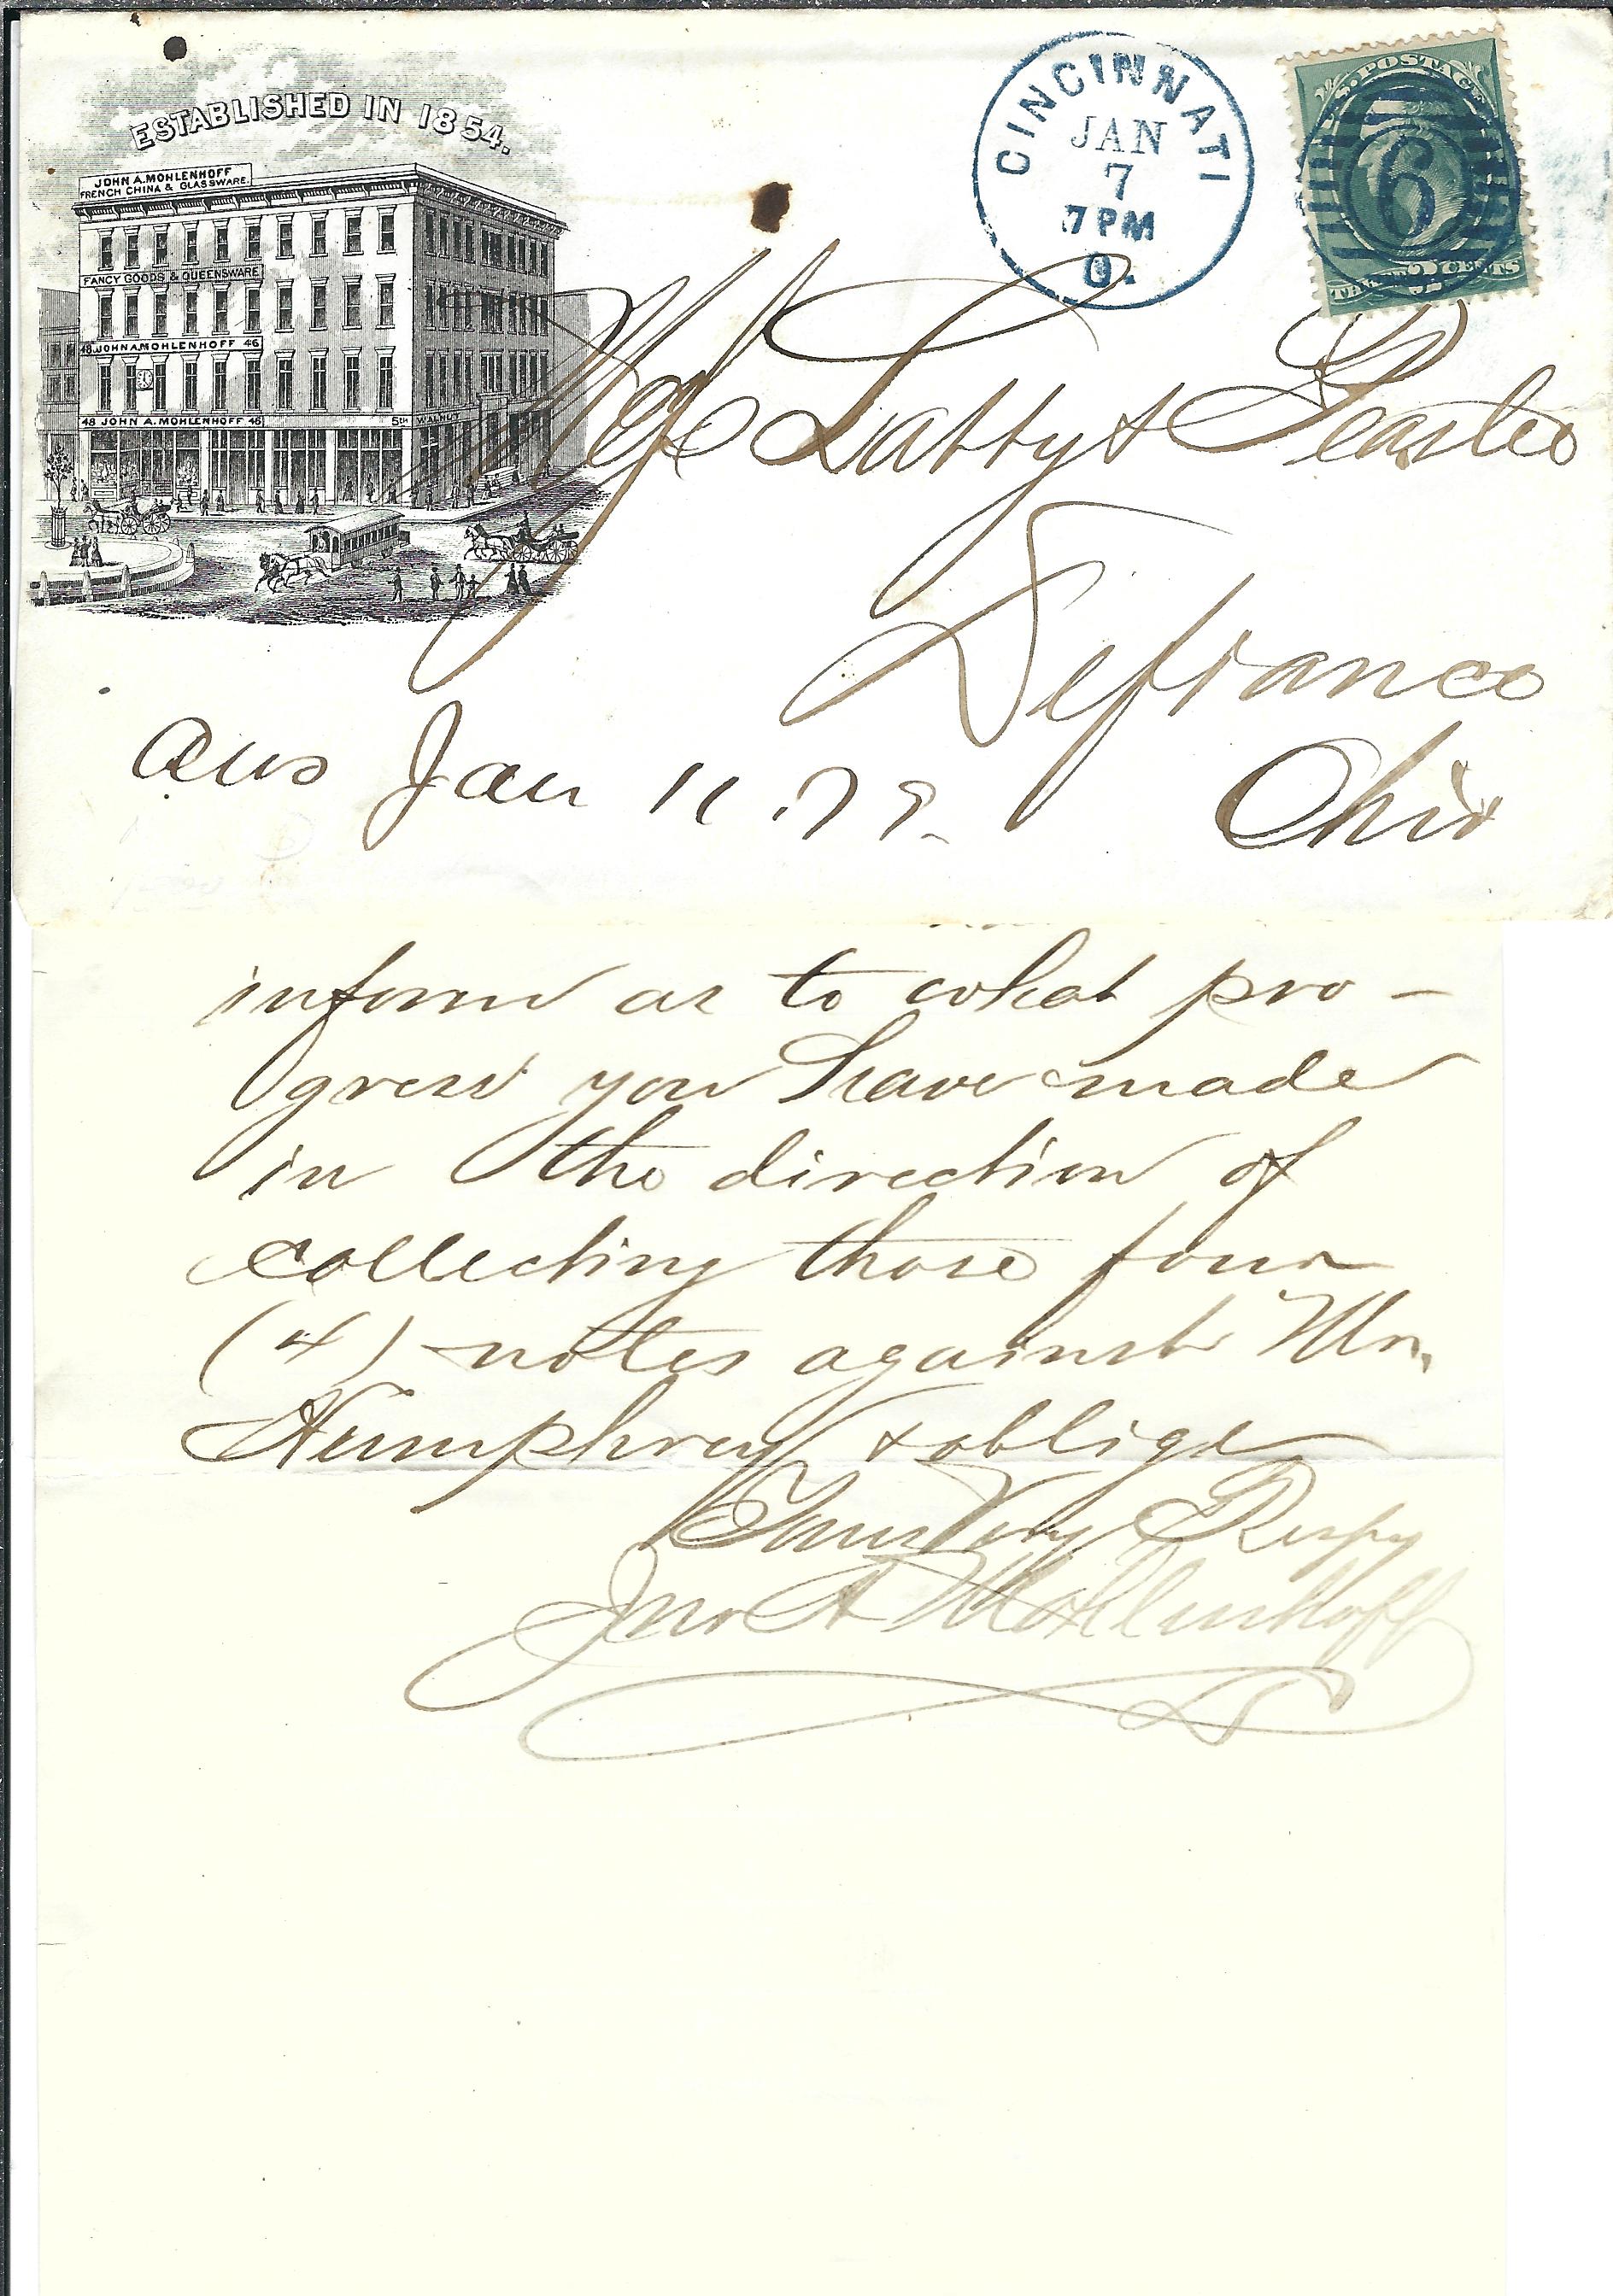 ESTABLISHED IN 1854.
JOHN A. MOHLENHOFF
FRENCH CHINA & GLASSWARE.
FANCY GOODS & QUEENSWARE
48 JOHN A. MOHLENHOFF 46
48 JOHN A. MOHLENHOFF 46 5TH WALNUT
CINCINNATI
JAN
7
7 PM
O.
U.S. POSTAGE
6
THREE 3 CENTS
Latty &
Defiance
Ohio
Ans Jan 11. 79.
inform as to what pro-
gress you have made
in the direction of
collecting those four
(4) notes against Mr.
Humphrey & oblige
Yours Very Respy
Jno A Mohlenhoff